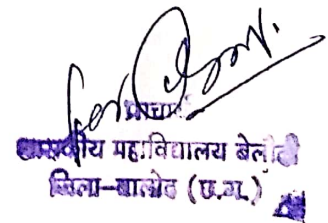 प्राचार्य
शासकीय महाविद्यालय बेलौदी
जिला-बालोद (छ.ग.)